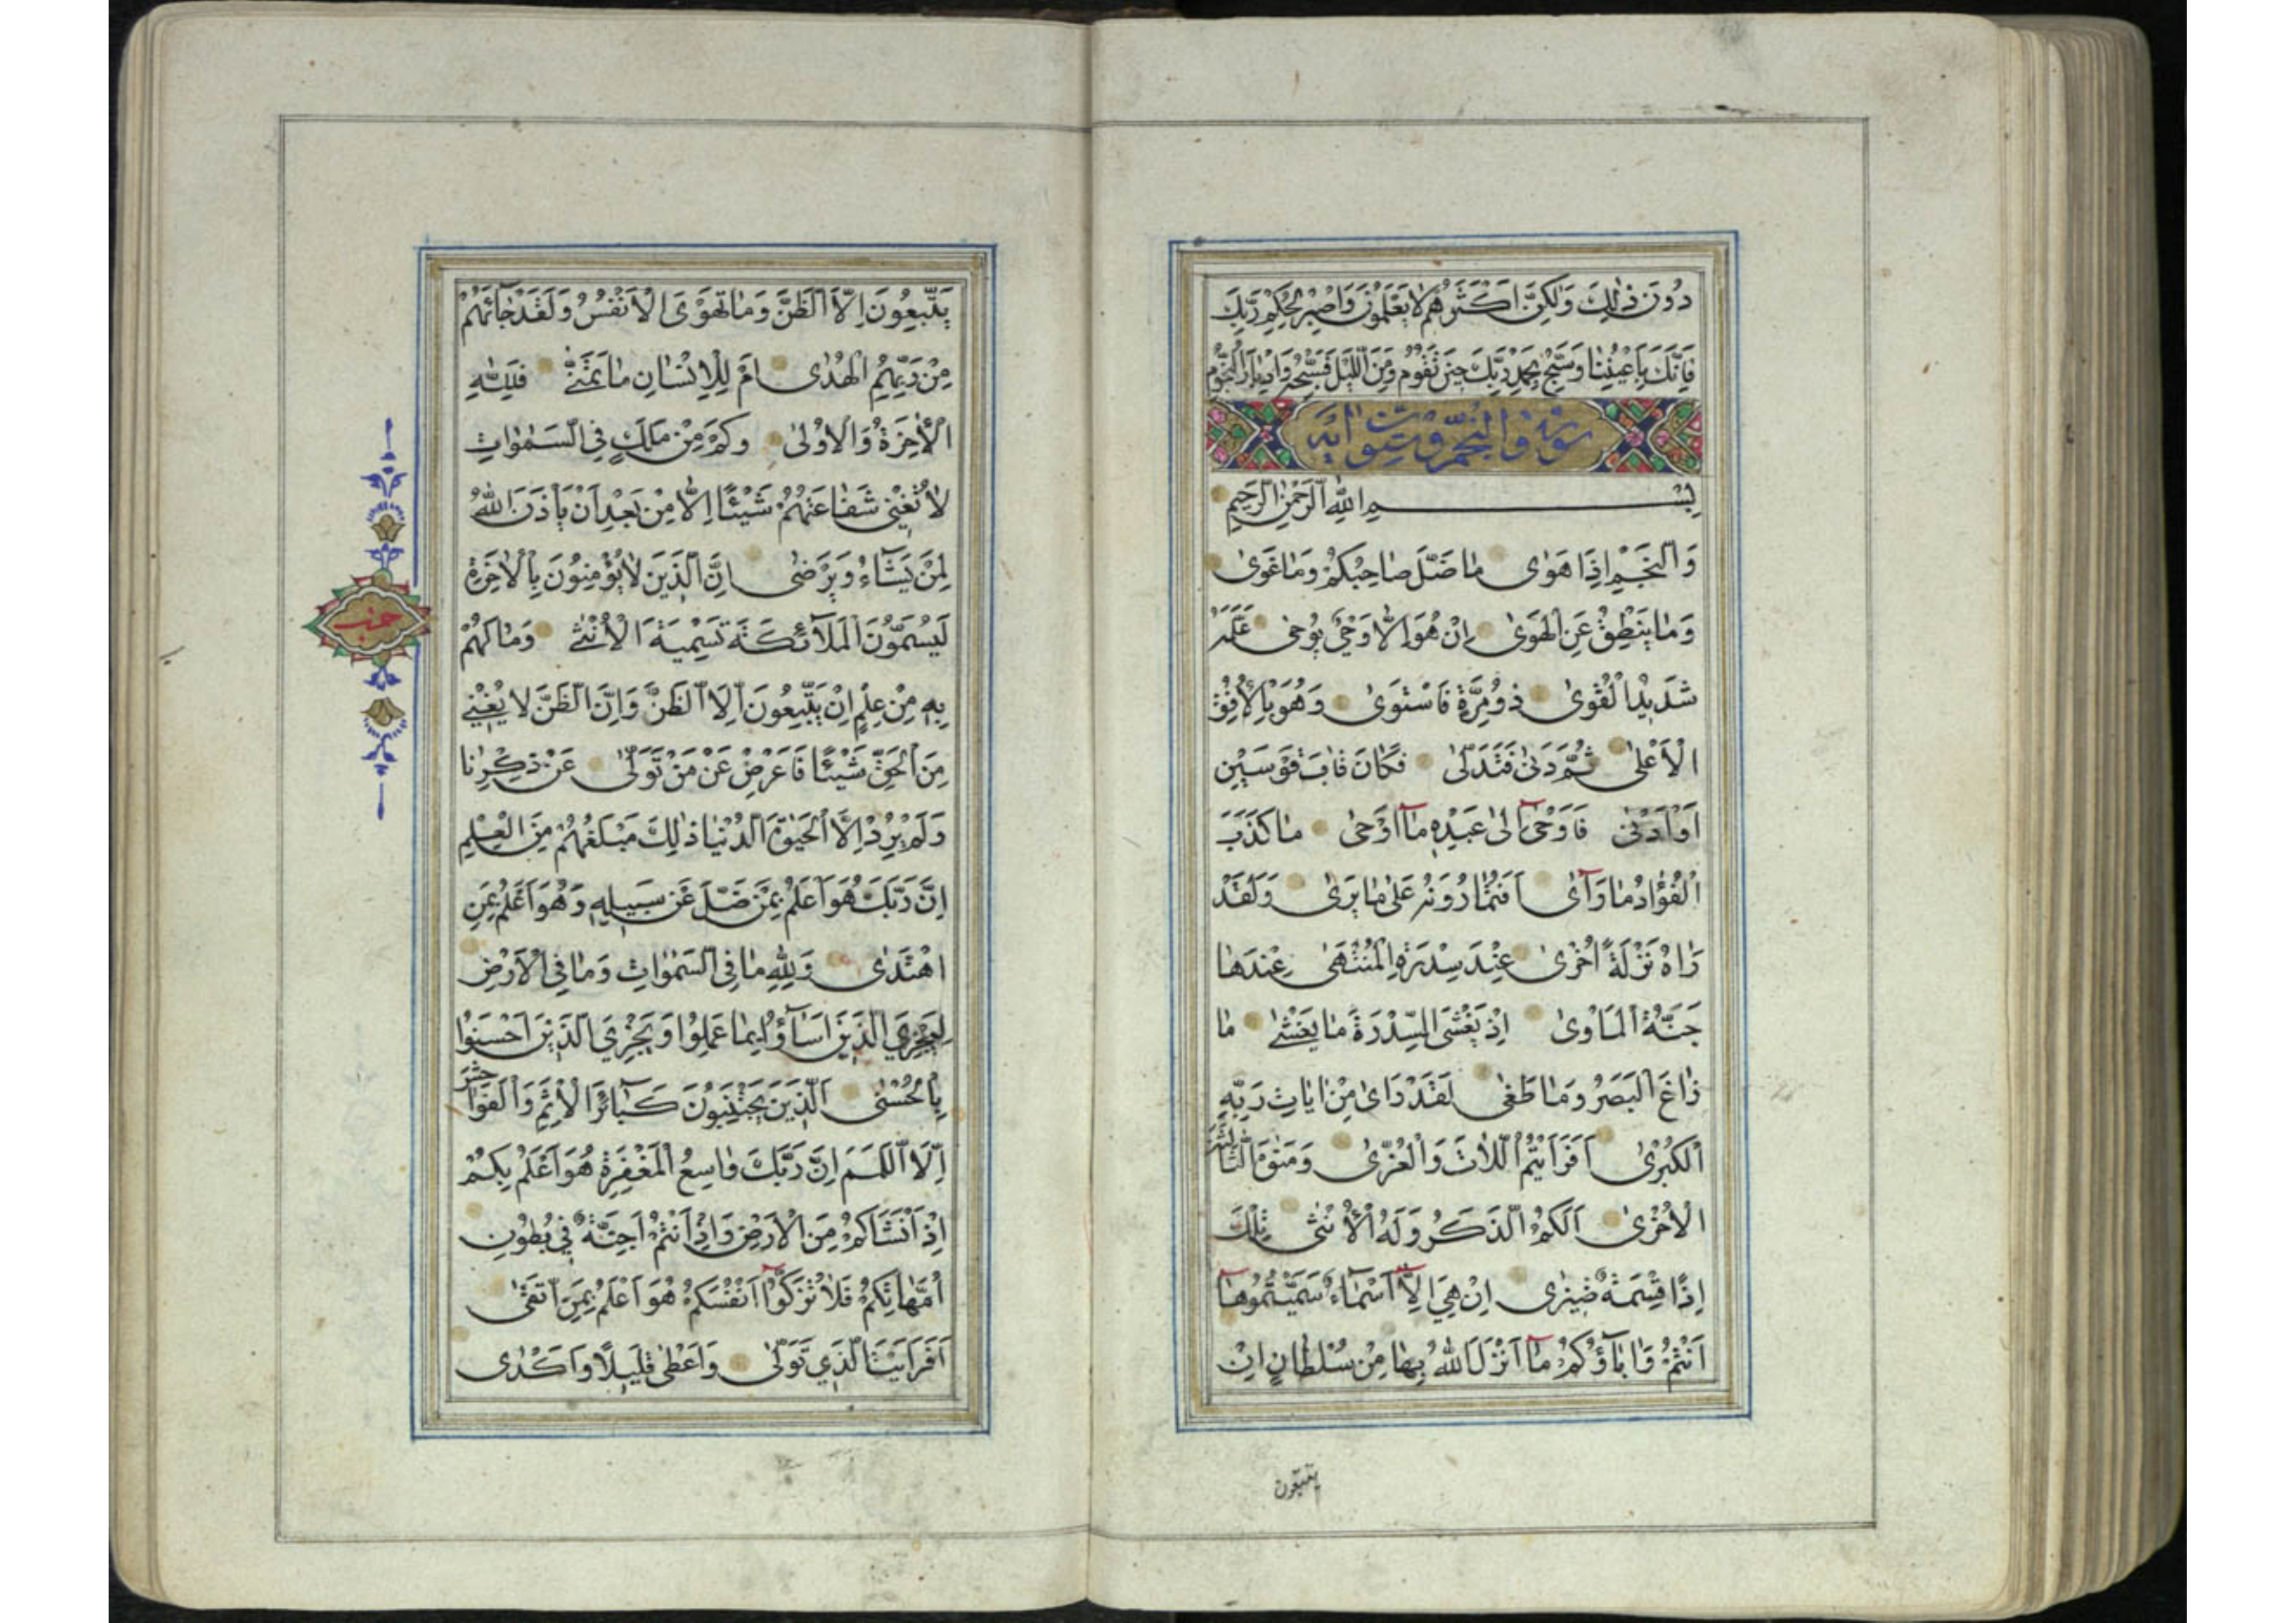 دُونَ ذٰلِكَ وَلٰكِنَّ اَكْثَرَهُمْ لَا يَعْلَمُونَ وَاصْبِرْ لِحُكْمِ رَبِّكَ
فَاِنَّكَ بِاَعْيُنِنَا وَسَبِّحْ بِحَمْدِ رَبِّكَ حِينَ تَقُومُ وَمِنَ اللَّيْلِ فَسَبِّحْهُ وَاِدْبَارَ النُّجُومِ
سورة والنجم وستون اية
بِسْمِ اللّٰهِ الرَّحْمٰنِ الرَّحِيمِ
وَالنَّجْمِ اِذَا هَوٰى مَا ضَلَّ صَاحِبُكُمْ وَمَا غَوٰى
وَمَا يَنْطِقُ عَنِ الْهَوٰى اِنْ هُوَ اِلَّا وَحْيٌ يُوحٰى عَلَّمَهُ
شَدِيدُ الْقُوٰى ذُو مِرَّةٍ فَاسْتَوٰى وَهُوَ بِالْاُفُقِ
الْاَعْلٰى ثُمَّ دَنٰى فَتَدَلّٰى فَكَانَ قَابَ قَوْسَيْنِ
اَوْ اَدْنٰى فَاَوْحٰٓى اِلٰى عَبْدِهٖ مَٓا اَوْحٰى مَا كَذَبَ
الْفُؤَادُ مَا رَاٰى اَفَتُمَارُونَهُ عَلٰى مَا يَرٰى وَلَقَدْ
رَاٰهُ نَزْلَةً اُخْرٰى عِنْدَ سِدْرَةِ الْمُنْتَهٰى عِنْدَهَا
جَنَّةُ الْمَاْوٰى اِذْ يَغْشَى السِّدْرَةَ مَا يَغْشٰى مَا
زَاغَ الْبَصَرُ وَمَا طَغٰى لَقَدْ رَاٰى مِنْ اٰيَاتِ رَبِّهِ
الْكُبْرٰى اَفَرَاَيْتُمُ اللَّاتَ وَالْعُزّٰى وَمَنٰوةَ الثَّالِثَةَ
الْاُخْرٰى اَلَكُمُ الذَّكَرُ وَلَهُ الْاُنْثٰى تِلْكَ
اِذًا قِسْمَةٌ ضِيزٰى اِنْ هِيَ اِلَّٓا اَسْمَاءٌ سَمَّيْتُمُوهَٓا
اَنْتُمْ وَاٰبَاؤُكُمْ مَٓا اَنْزَلَ اللّٰهُ بِهَا مِنْ سُلْطَانٍ اِنْ
يتبعون
يَتَّبِعُونَ اِلَّا الظَّنَّ وَمَا تَهْوَى الْاَنْفُسُ وَلَقَدْ جَائَهُمْ
مِنْ رَبِّهِمُ الْهُدٰى اَمْ لِلْاِنْسَانِ مَا تَمَنّٰى فَلِلّٰهِ
الْاٰخِرَةُ وَالْاُولٰى وَكَمْ مِنْ مَلَكٍ فِي السَّمٰوَاتِ
لَا تُغْنِي شَفَاعَتُهُمْ شَيْئًا اِلَّا مِنْ بَعْدِ اَنْ يَاْذَنَ اللّٰهُ
لِمَنْ يَشَاءُ وَيَرْضٰى اِنَّ الَّذِينَ لَا يُؤْمِنُونَ بِالْاٰخِرَةِ
لَيُسَمُّونَ الْمَلٰٓائِكَةَ تَسْمِيَةَ الْاُنْثٰى وَمَا لَهُمْ
بِهٖ مِنْ عِلْمٍ اِنْ يَتَّبِعُونَ اِلَّا الظَّنَّ وَاِنَّ الظَّنَّ لَا يُغْنِي
مِنَ الْحَقِّ شَيْئًا فَاَعْرِضْ عَنْ مَنْ تَوَلّٰى عَنْ ذِكْرِنَا
وَلَمْ يُرِدْ اِلَّا الْحَيٰوةَ الدُّنْيَا ذٰلِكَ مَبْلَغُهُمْ مِنَ الْعِلْمِ
اِنَّ رَبَّكَ هُوَ اَعْلَمُ بِمَنْ ضَلَّ عَنْ سَبِيلِهٖ وَهُوَ اَعْلَمُ بِمَنِ
اهْتَدٰى وَلِلّٰهِ مَا فِي السَّمٰوَاتِ وَمَا فِي الْاَرْضِ
لِيَجْزِيَ الَّذِينَ اَسَاؤُا بِمَا عَمِلُوا وَيَجْزِيَ الَّذِينَ اَحْسَنُوا
بِالْحُسْنٰى اَلَّذِينَ يَجْتَنِبُونَ كَبَٓائِرَ الْاِثْمِ وَالْفَوَاحِشَ
اِلَّا اللَّمَمَ اِنَّ رَبَّكَ وَاسِعُ الْمَغْفِرَةِ هُوَ اَعْلَمُ بِكُمْ
اِذْ اَنْشَاَكُمْ مِنَ الْاَرْضِ وَاِذْ اَنْتُمْ اَجِنَّةٌ فِي بُطُونِ
اُمَّهَاتِكُمْ فَلَا تُزَكُّٓوا اَنْفُسَكُمْ هُوَ اَعْلَمُ بِمَنِ اتَّقٰى
اَفَرَاَيْتَ الَّذِي تَوَلّٰى وَاَعْطٰى قَلِيلًا وَاَكْدٰى
حزب